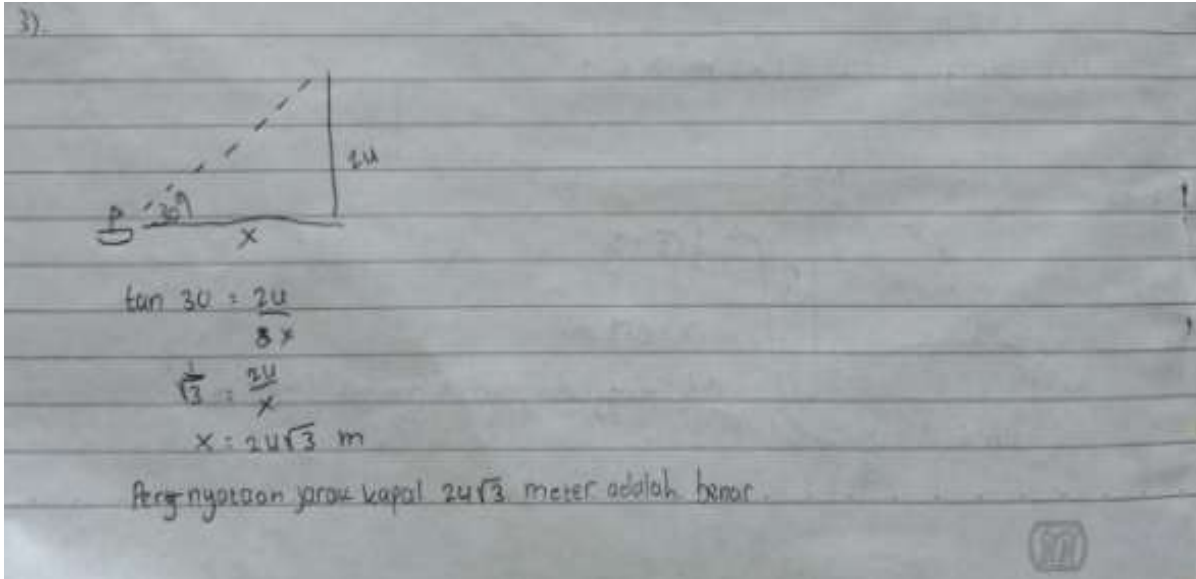 3).
24
30°
x
tan 30 = 24
x
1/√3 = 24/x
x = 24√3 m
Pernyataan jarak kapal 24√3 meter adalah benar.